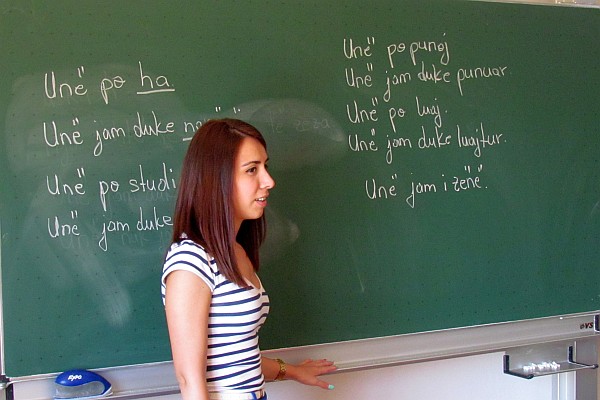 Unë po ha
Unë jam duke
Unë po studi
Unë jam duke
Unë po punoj
Unë jam duke punuar.
Unë po luaj.
Unë jam duke luajtur.
Unë jam i zënë.
evs
EXPO